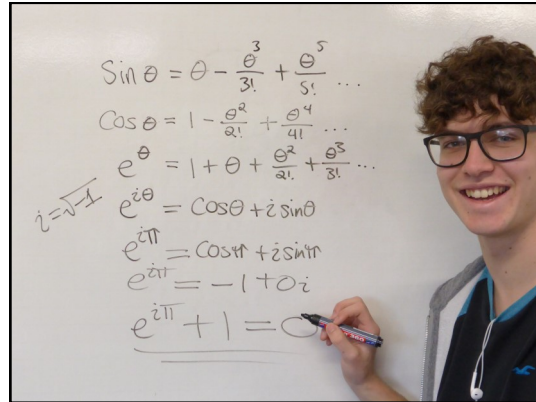 Sin θ = θ - θ³/3! + θ⁵/5! ...
Cos θ = 1 - θ²/2! + θ⁴/4! ...
e^θ = 1 + θ + θ²/2! + θ³/3! ...
i = √-1
e^iθ = Cosθ + i sinθ
e^iπ = Cosπ + i sinπ
e^iπ = -1 + 0i
e^iπ + 1 = 0